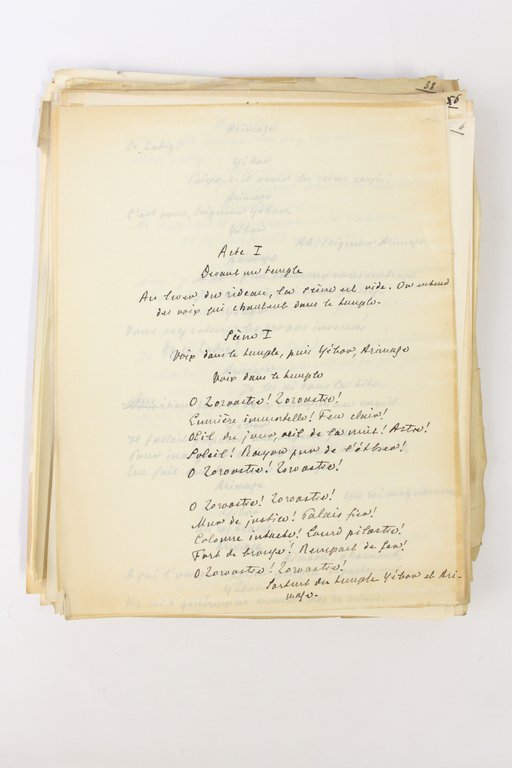 33
56
6
Acte I
Devant un temple
Au lever du rideau, la scène est vide. On entend
des voix qui chantent dans le temple.
Scène I
Voix dans le temple, puis Yébor, Arimage
Voix dans le temple
O Zoroastre! Zoroastre!
Lumière immortelle! Feu clair!
Œil du jour, œil de la nuit! Astre!
Soleil! Rayon pur de l'éther!
O Zoroastre! Zoroastre!
O Zoroastre! Zoroastre!
Mur de justice! Palais fier!
Colonne intacte! Lourd pilastre!
Fort de bronze! Rempart de fer!
O Zoroastre! Zoroastre!
Sortent du temple Yébor et Ari-
mage.